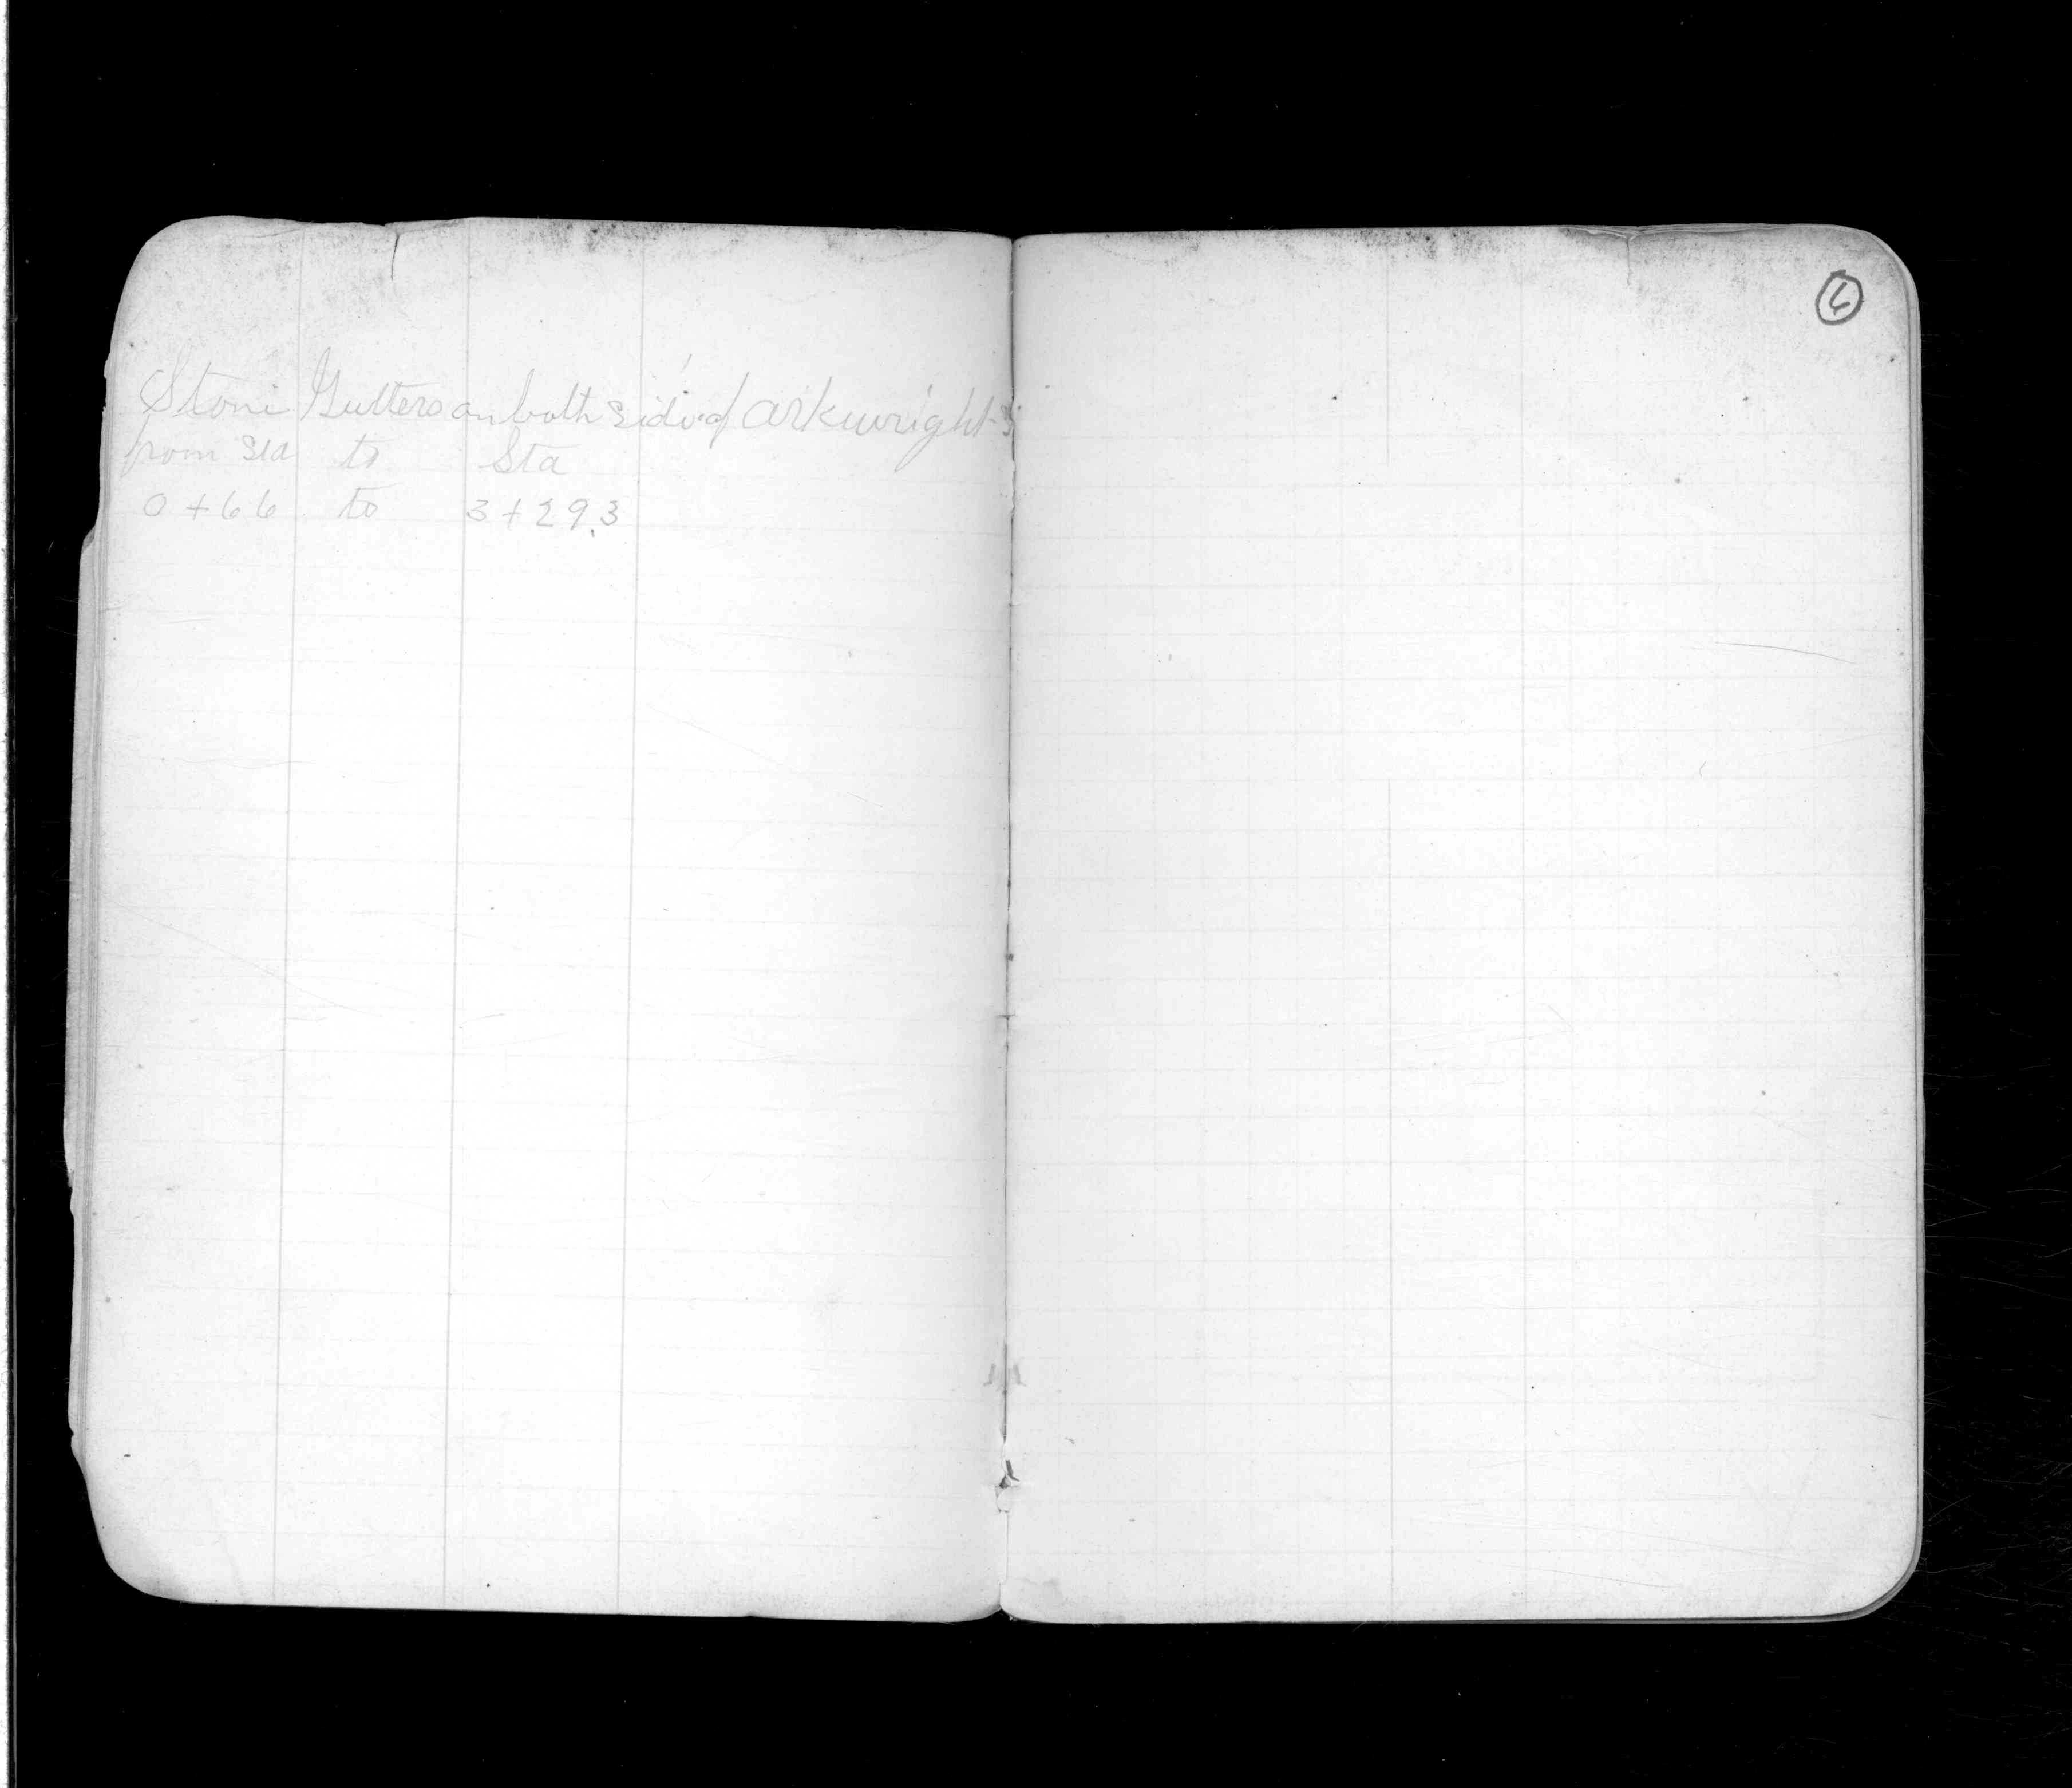 Stone Gutters on both side of Arkwright S
from Sta to Sta
0+66 to 3+29.3
6